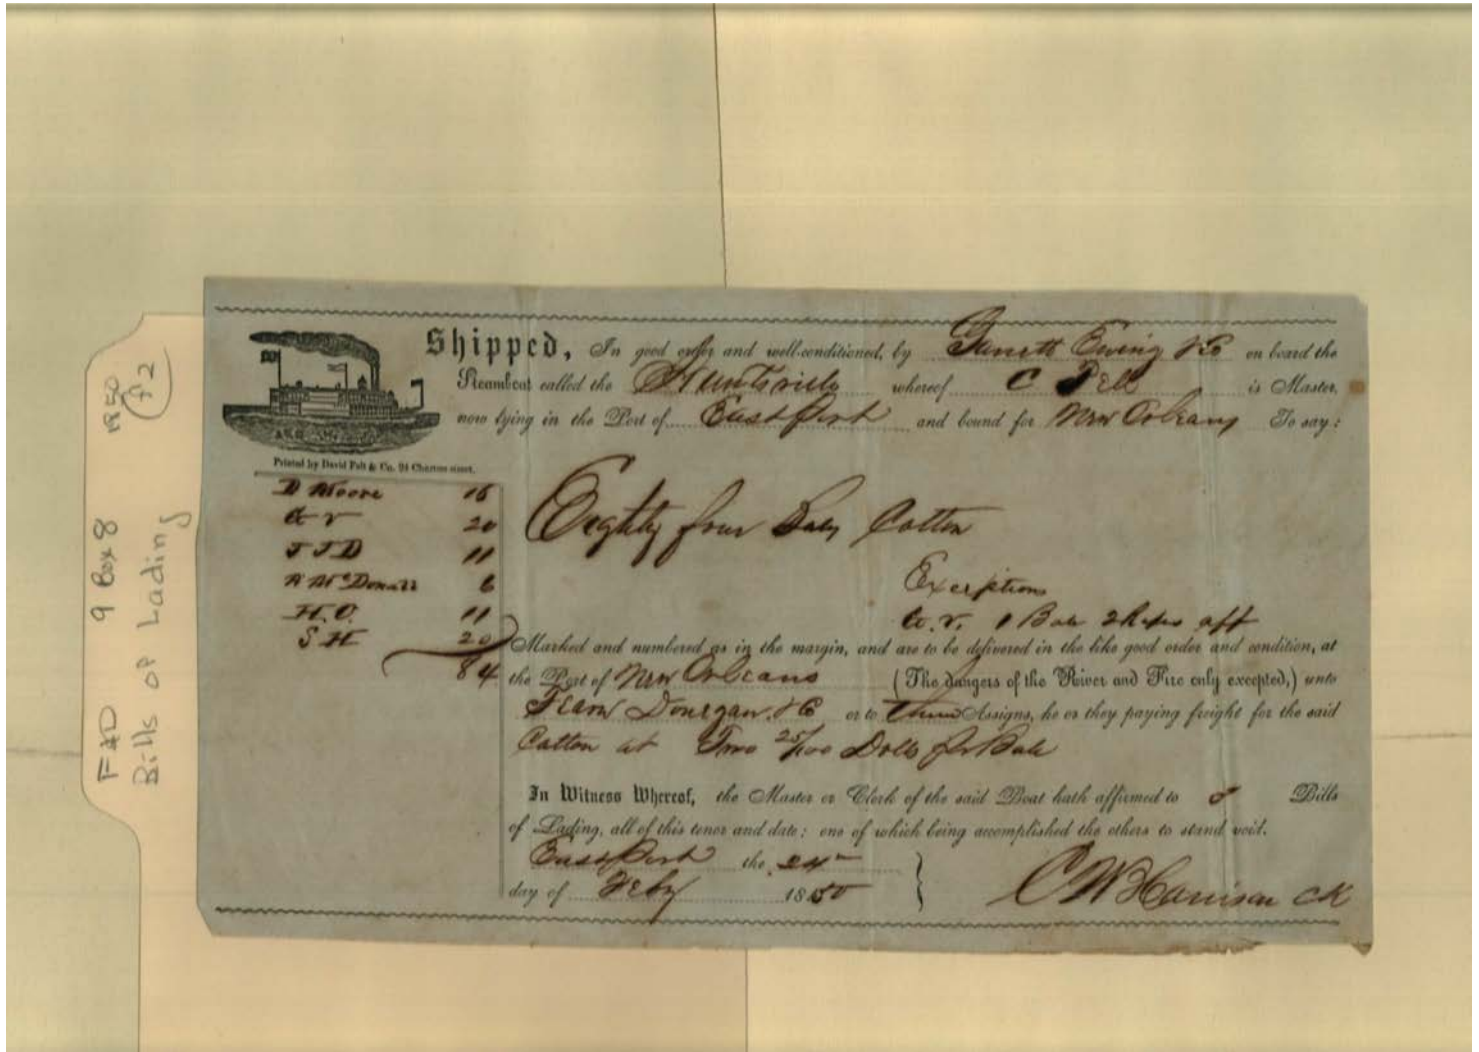 FAD 9 Box 8 1850
f2
Bills of Lading
Shipped, In good order and well-conditioned, by Garrett Ewing & Co on board the
Steamboat called the Huntsville whereof C Pell is Master,
now lying in the Port of East Port and bound for New Orleans To say:
Printed by David Felt & Co. 24 Chartres street.
D Moore 16
20
J J D 11
McDonald 6
H.O. 11
S H 20
84
Eighty four Bales Cotton
Exceptions
1 Bale 2 Ropes off
Marked and numbered as in the margin, and are to be delivered in the like good order and condition, at
the Port of New Orleans (The dangers of the River and Fire only excepted,) unto
Fearn Donegan & Co or to their Assigns, he or they paying freight for the said
Cotton at Two 25/100 Dolls pr Bale
In Witness Whereof, the Master or Clerk of the said Boat hath affirmed to Bills
of Lading, all of this tenor and date: one of which being accomplished the others to stand void.
East Port the 24
day of Feby 1850
C W Harrison Ck